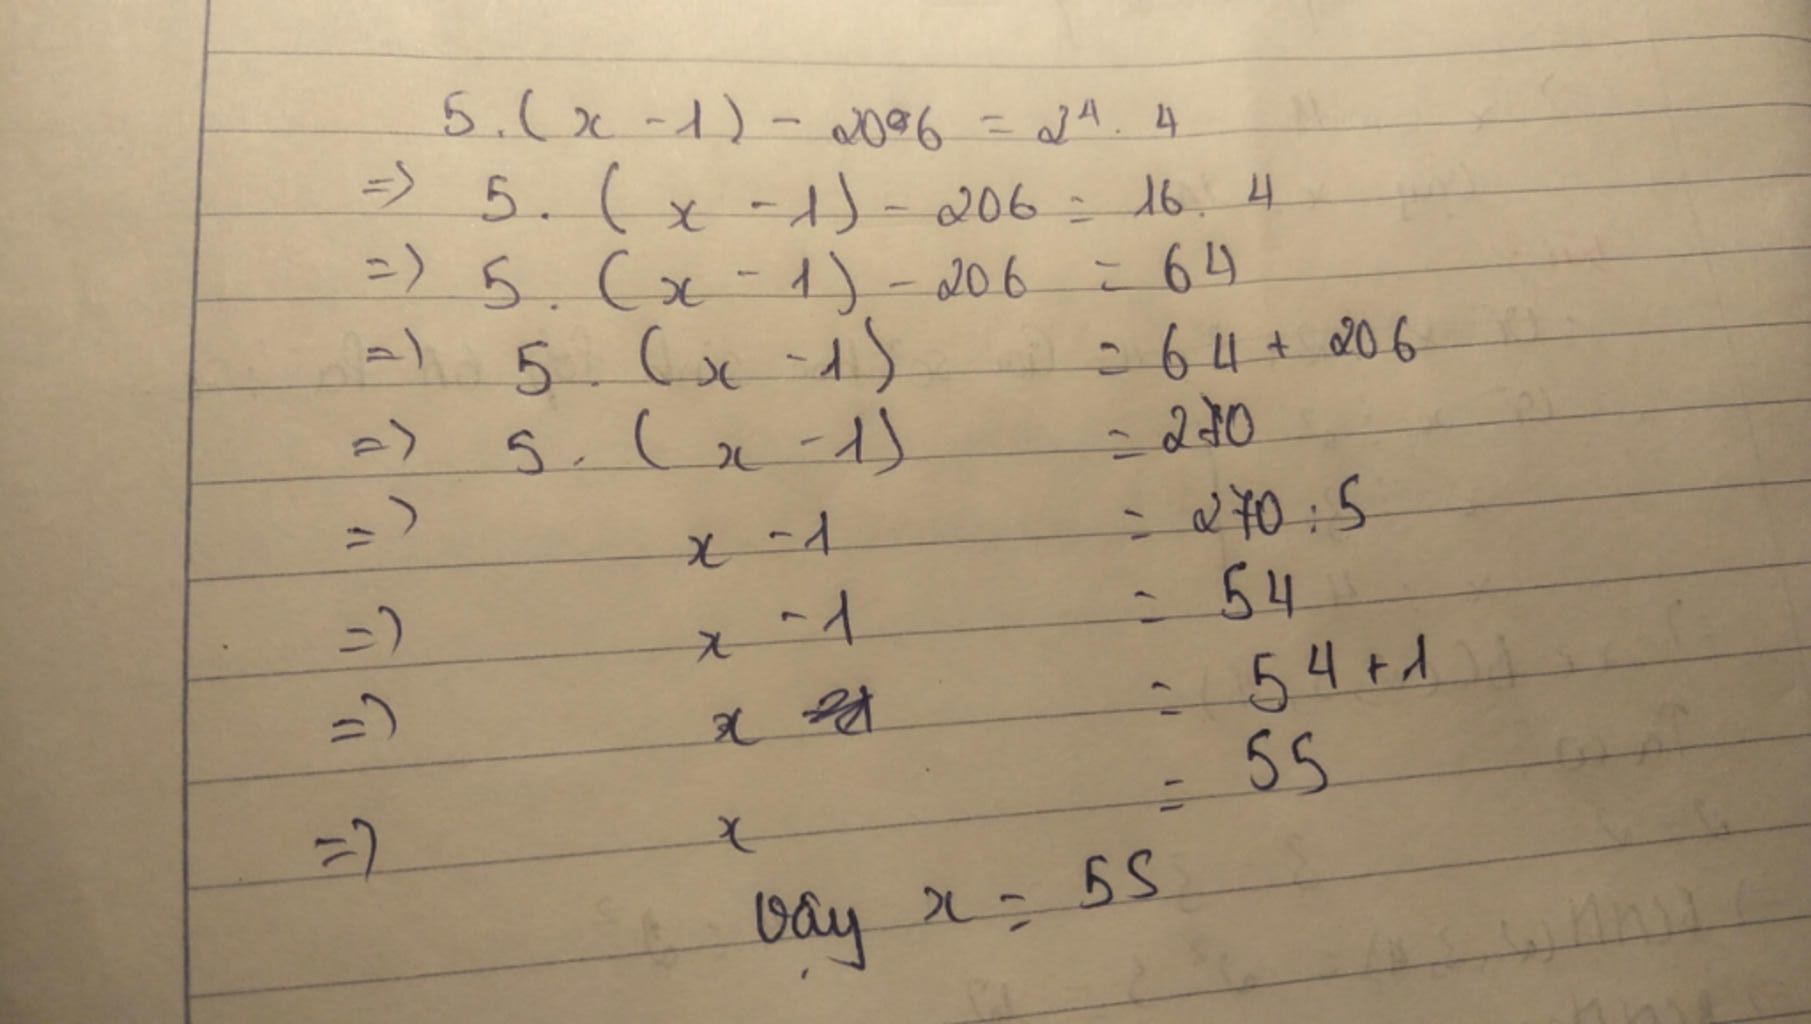 5.(x-1) - 206 = 2⁴. 4
=> 5. (x - 1) - 206 = 16. 4
=> 5. (x - 1) - 206 = 64
=> 5. (x - 1) = 64 + 206
=> 5. (x - 1) = 270
=> x - 1 = 270 : 5
=> x - 1 = 54
=> x = 54 + 1
=> x = 55
Vậy x = 55